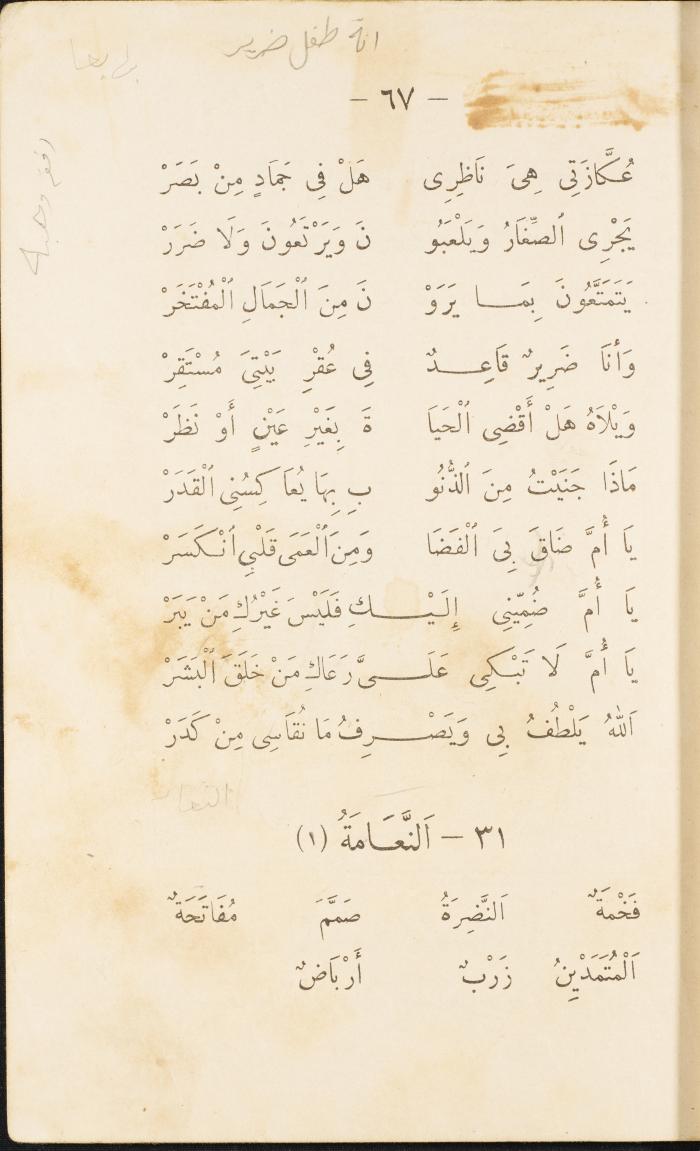 انة طفل ضرير
— ٦٧ —
عُكَّازَتِي هِىَ نَاظِرِى هَلْ فِي جَمَادٍ مِنْ بَصَرْ
يَجْرِى ٱلصِّغَارُ وَيَلْعَبُو نَ وَيَرْتَعُونَ وَلَا ضَرَرْ
يَتَمَتَّعُونَ بِمَا يَرَوْ نَ مِنَ ٱلْجَمَالِ ٱلْمُفْتَخَرْ
وَأَنَا ضَرِيرٌ قَاعِدٌ فِي عُقْرِ بَيْتِيَ مُسْتَقِرْ
وَيْلَاهُ هَلْ أَقْضِى ٱلْحَيَا ةَ بِغَيْرِ عَيْنٍ أَوْ نَظَرْ
مَاذَا جَنَيْتُ مِنَ ٱلذُّنُو بِ بِهَا يُعَاكِسُنِي ٱلْقَدَرْ
يَا أُمَّ ضَاقَ بِيَ ٱلْفَضَا وَمِنَ ٱلْعَمَى قَلْبِي ٱنْكَسَرْ
يَا أُمَّ ضُمِّينِي إِلَيْكِ فَلَيْسَ غَيْرُكِ مَنْ يَبَرْ
يَا أُمَّ لَا تَبْكِي عَلَىَّ رَعَاكِ مَنْ خَلَقَ ٱلْبَشَرْ
اَللّٰهُ يَلْطُفُ بِي وَيَصْرِفُ مَا نُقَاسِى مِنْ كَدَرْ
٣١ — اَلنَّعَامَةُ (١)
فَخْمَةٌ اَلنَّضِرَةُ صَمَّمَ مُفَاتَحَةٌ
اَلْمُتَمَدْيِنُ زَرْبٌ أَرْبَاضٌ